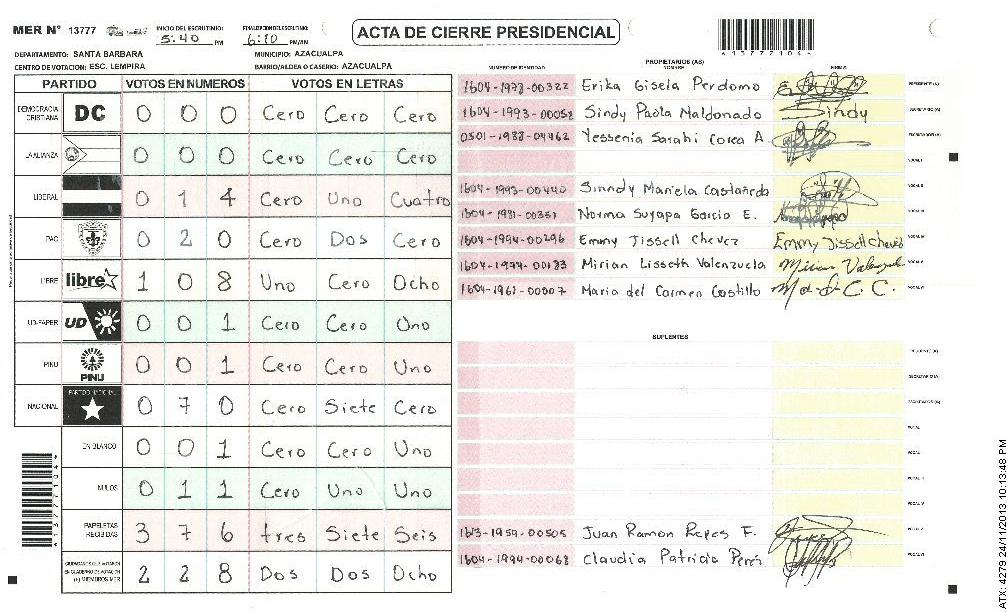 MER N° 13777 INICIO DEL ESCRUTINIO: 5:40 PM FINALIZACION DEL ESCRUTINIO: 6:10 PM/AM
ACTA DE CIERRE PRESIDENCIAL
DEPARTAMENTO: SANTA BARBARA MUNICIPIO: AZACUALPA
CENTRO DE VOTACION: ESC. LEMPIRA BARRIO/ALDEA O CASERIO: AZACUALPA
PARTIDO VOTOS EN NUMEROS VOTOS EN LETRAS
DEMOCRACIA CRISTIANA DC 0 0 0 Cero Cero Cero
LA ALIANZA 0 0 0 Cero Cero Cero
LIBERAL 0 1 4 Cero Uno Cuatro
PAC 0 2 0 Cero Dos Cero
LIBRE libre 1 0 8 Uno Cero Ocho
UD-FAPER UD 0 0 1 Cero Cero Uno
PINU PINU 0 0 1 Cero Cero Uno
NACIONAL PARTIDO NACIONAL 0 7 0 Cero Siete Cero
EN BLANCO 0 0 1 Cero Cero Uno
NULOS 0 1 1 Cero Uno Uno
PAPELETAS RECIBIDAS 3 7 6 tres Siete Seis
CIUDADANOS QUE VOTARON EN CUADERNO DE VOTACION (+) MIEMBROS MER 2 2 8 Dos Dos Ocho
PROPIETARIOS (AS)
NUMERO DE IDENTIDAD NOMBRE FIRMA
1604-1973-00322 Erika Gisela Perdomo PRESIDENTE (A)
1604-1993-00052 Sindy Paola Maldonado Sindy SECRETARIO (A)
0501-1988-04462 Yessenia Sarahi Corea A. ESCRUTADOR (A)
VOCAL I
1604-1993-00440 Sinndy Mariela Castañeda VOCAL II
1604-1981-00351 Norma Suyapa Garcia E. VOCAL III
1604-1994-00296 Emmy Jissell Chevez Emmy Jissell Chevez VOCAL IV
1604-1974-00183 Mirian Lisseth Valenzuela VOCAL V
1604-1961-00007 Maria del Carmen Castillo VOCAL VI
SUPLENTES
PRESIDENTE (A)
SECRETARIO (A)
ESCRUTADOR (A)
VOCAL I
VOCAL II
VOCAL III
VOCAL IV
1613-1959-00505 Juan Ramon Reyes F. VOCAL V
1604-1994-00068 Claudia Patricia VOCAL VI
ATX: 4279 24/11/2013 10:13:48 PM